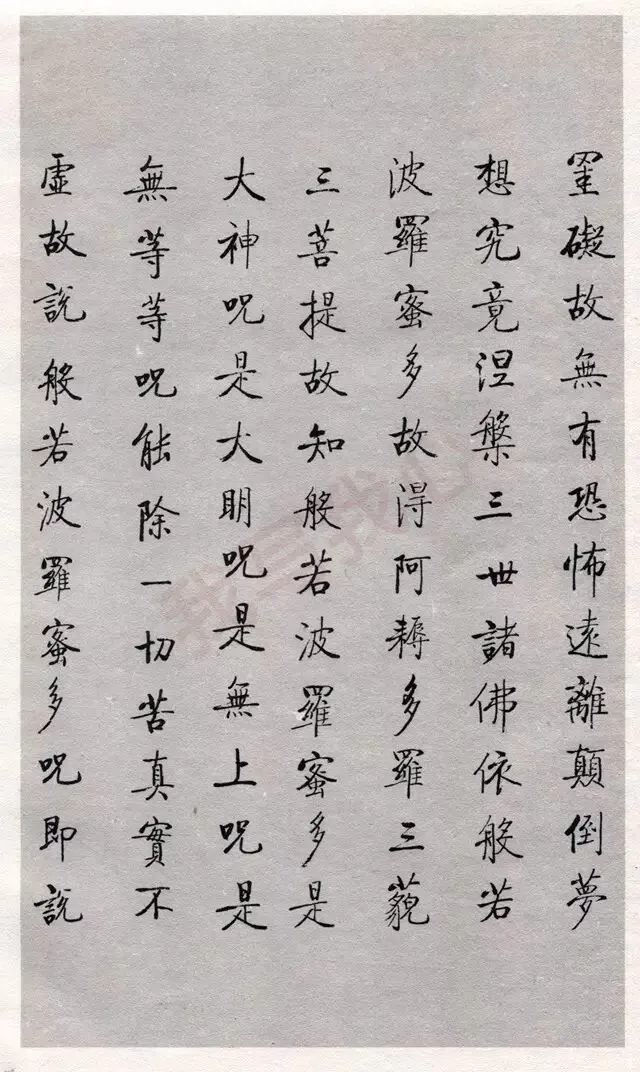 罣礙故無有恐怖遠離顛倒夢
想究竟涅槃三世諸佛依般若
波羅蜜多故得阿耨多羅三藐
三菩提故知般若波羅蜜多是
大神咒是大明咒是無上咒是
無等等咒能除一切苦真實不
虛故說般若波羅蜜多咒即說